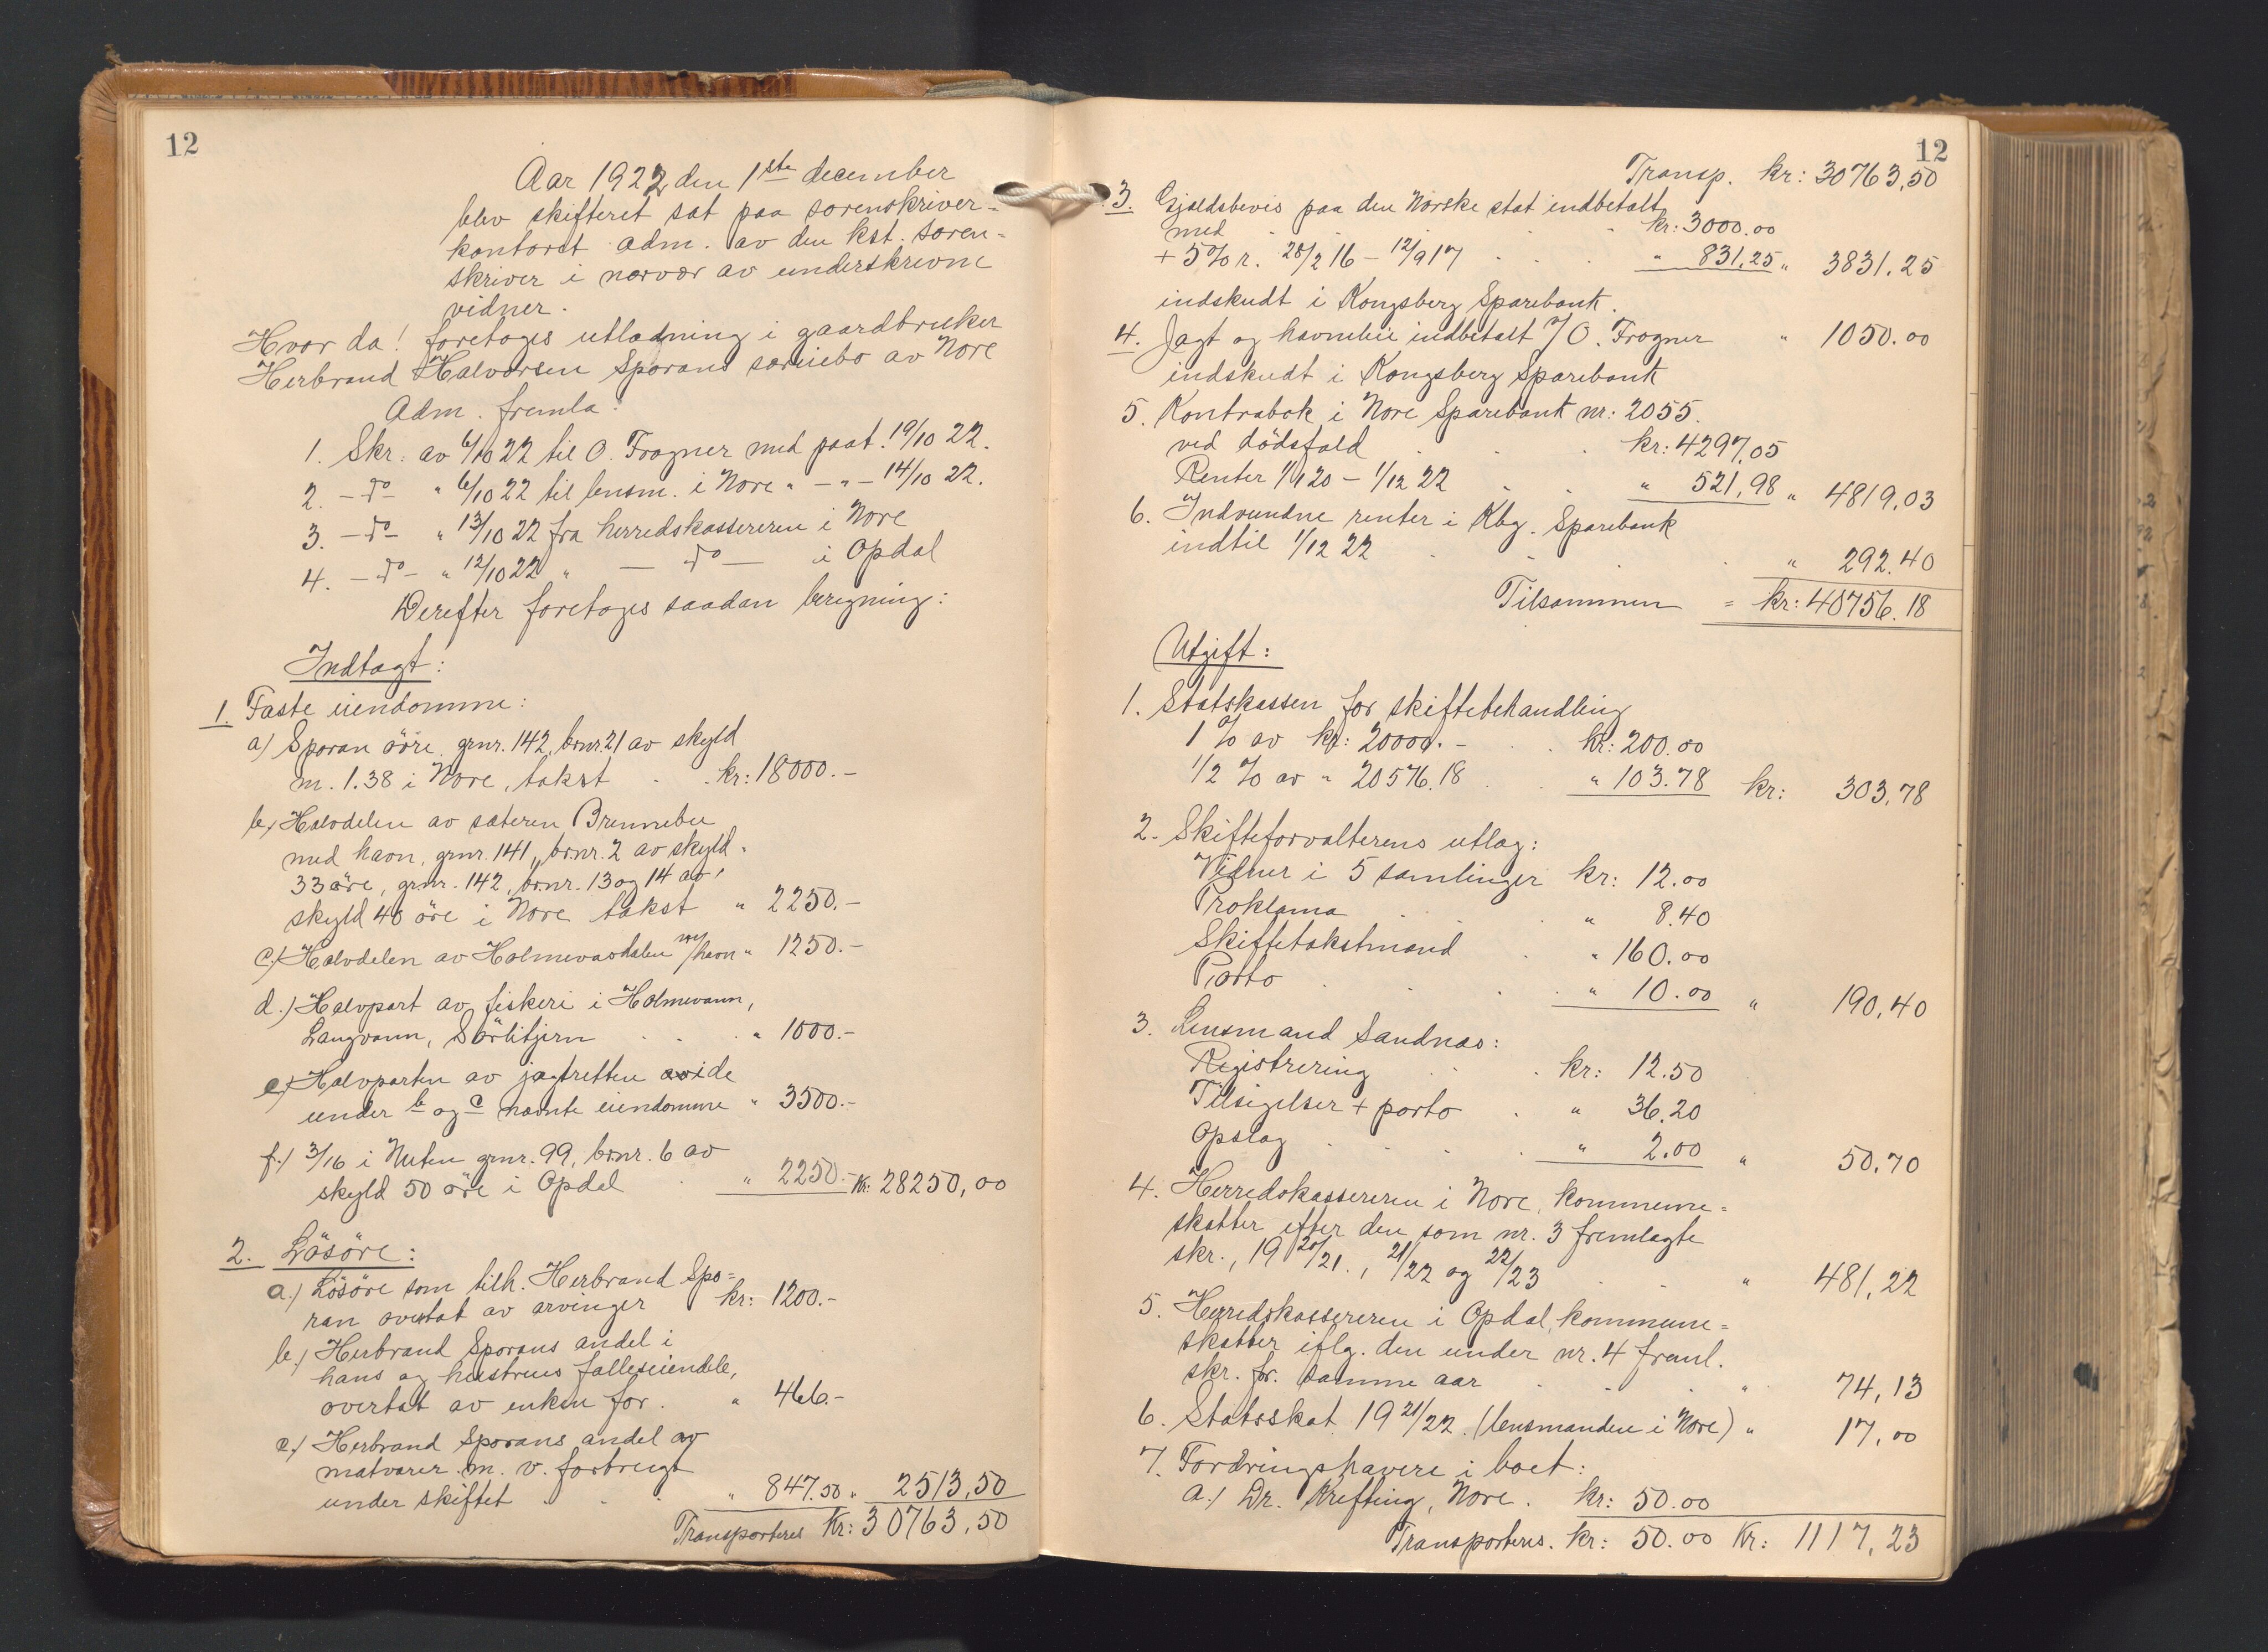 12
Aar 1922 den 1ste december
blev skifteret sat paa sorenskriver-
kontoret adm. av den kst. soren-
skriver i nærvær av underskrevne
vidner.
Hvor da! foretoges utlodning i gaardbruker
Herbrand Halvorsen Sporans særeiebo av Nore
Adm. fremla:
1. Skr. av 6/10 22 til O. Frogner med paat. 19/10 22.
2. - do - " 6/10 22 til lensm. i Nore " - " - 14/10 22.
3. - do - " 13/10 22 fra herredskassereren i Nore
4. - do - " 12/10 22 " — do — i Opdal
Derefter foretoges saadan beregning:
Indtægt:
1. Faste eiendomme:
a) Sporan övre, grnr. 142, brnr. 21 av skyld
m. 1.38 i Nore, takst . . kr: 18000.-
b) Halvdelen av sæteren Brennebu
med havn, grnr. 141, brnr. 2 av skyld
33 øre, grnr. 142, brnr. 13 og 14 av
skyld 40 öre i Nore takst " 2250.-
c.) Halvdelen av Holmevasdalen m/havn " 1250.-
d.) Halvpart av fiskeri i Holmevann,
Langvann, Sörlitjern . . . " 1000.-
e.) Halvparten av jagtretten avide
under b og c nævnte eiendomme " 3500.-
f.) 3/16 i Nuten grnr. 99, brnr. 6 av
skyld 50 öre i Opdal . " 2250.- Kr: 28250,00
2. Lösöre:
a.) Lösöre som tilh. Herbrand Spo-
ran overtat av arvinger kr: 1200.-
b.) Herbrand Sporans andel i
hans og hustrues fælleseiendele,
overtat av enken for . " 466.-
c.) Herbrand Sporans andel av
matvarer m. v. forbrugt
under skiftet . . . " 847.50 " 2513,50
Transporteres Kr: 30763,50
12
Transp. kr: 30763,50
3. Gjældsbevis paa den Norske stat indbetalt
med . . . . kr: 3000.00
+ 5% r. 28/2 16 - 12/9 17 . . . " 831.25 " 3831.25
indskudt i Kongsberg Sparebank.
4. Jagt og havneleie indbetalt v/ O. Frogner " 1050.00
indskudt i Kongsberg Sparebank
5. Kontrabok i Nore Sparebank nr: 2055.
ved dödsfald . . . kr: 4297.05
Renter 1/1 20 - 1/12 22 . . " 521,98 " 4819,03
6. Indvundne renter i Kbg. Sparebank
indtil 1/12 22 . . . . " 292.40
Tilsammen = kr: 40756.18
Utgift:
1. Statskassen for skiftebehandling
1% av kr: 20000.- . . kr: 200.00
1/2 % av " 20576.18 . . " 103.78 kr: 303,78
2. Skifteforvalterens utlæg:
Vidner i 5 samlinger kr: 12.00
Proklama . . . " 8.40
Skiftetakstmænd . " 160.00
Porto . . . " 10.00 " 190,40
3. Lensmand Sandnæs:
Registrering . . . kr: 12.50
Tilsigelser + porto . " 36.20
Opslag . . . . " 2.00 " 50.70
4. Herredskassereren i Nore, kommune-
skatter efter den som nr. 3 fremlagte
skr., 19 20/21., 21/22 og 22/23 . . " 481,22
5. Herredskassereren i Opdal, kommune-
skatter iflg. den under nr. 4 freml.
skr. for samme aar . . . " 74,13
6. Statsskat 19 21/22. (lensmanden i Nore) " 17,00
7. Fordringshavere i boet:
a.) Dr. Krefting, Nore. kr: 50.00
Transporteres. kr: 50.00 Kr: 1117,23